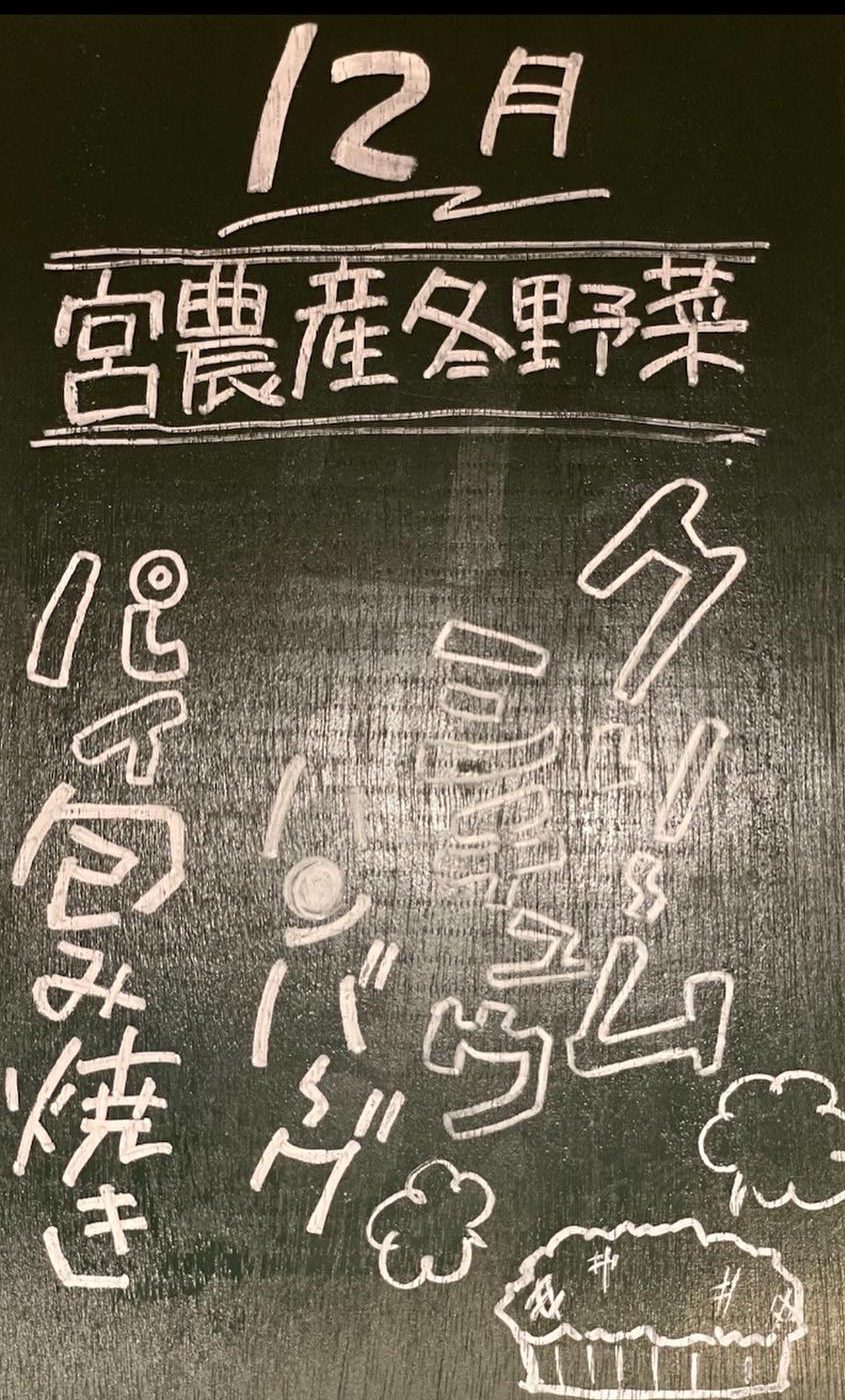 12月
宮農産冬野菜
クリーム
ハンバーグ
パイ包み焼き